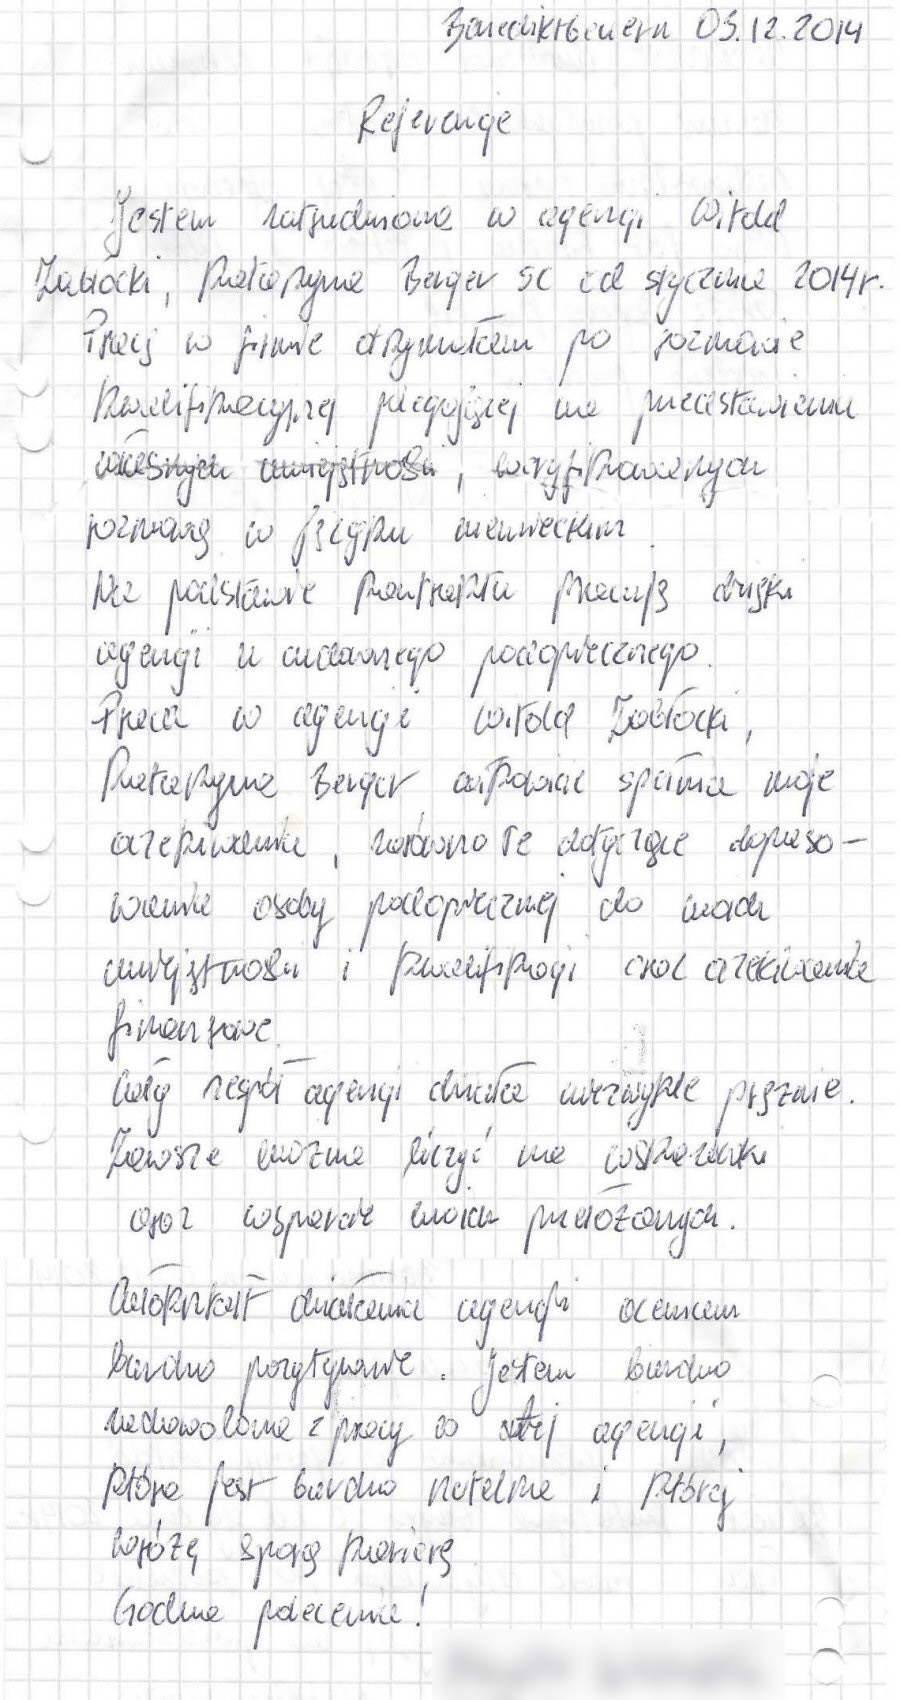 Benediktbeuern 05.12.2014
Referencje
Jestem zatrudniona w agencji Witold
Zabłocki, Katarzyna Berger SC od stycznia 2014r.
Pracę w firmie otrzymałam po rozmowie
kwalifikacyjnej polegającej na przedstawieniu
własnych umiejętności, weryfikowanych
rozmową w języku niemieckim.
Na podstawie kontraktu pracuję dzięki
agencji u cudownego podopiecznego.
Praca w agencji Witold Zabłocki,
Katarzyna Berger całkowicie spełnia moje
oczekiwania, zarówno te dotyczące dopaso-
wania osoby podopiecznej do moich
umiejętności i kwalifikacji oraz oczekiwania
finansowe.
Cały zespół agencji działa niezwykle prężnie.
Zawsze można liczyć na wskazówki
oraz wsparcie moich przełożonych.
Całokształt działania agencji oceniam
bardzo pozytywnie. Jestem bardzo
zadowolona z pracy w tej agencji,
która jest bardzo rzetelna i której
wróżę sporą karierę
Godna polecenia!